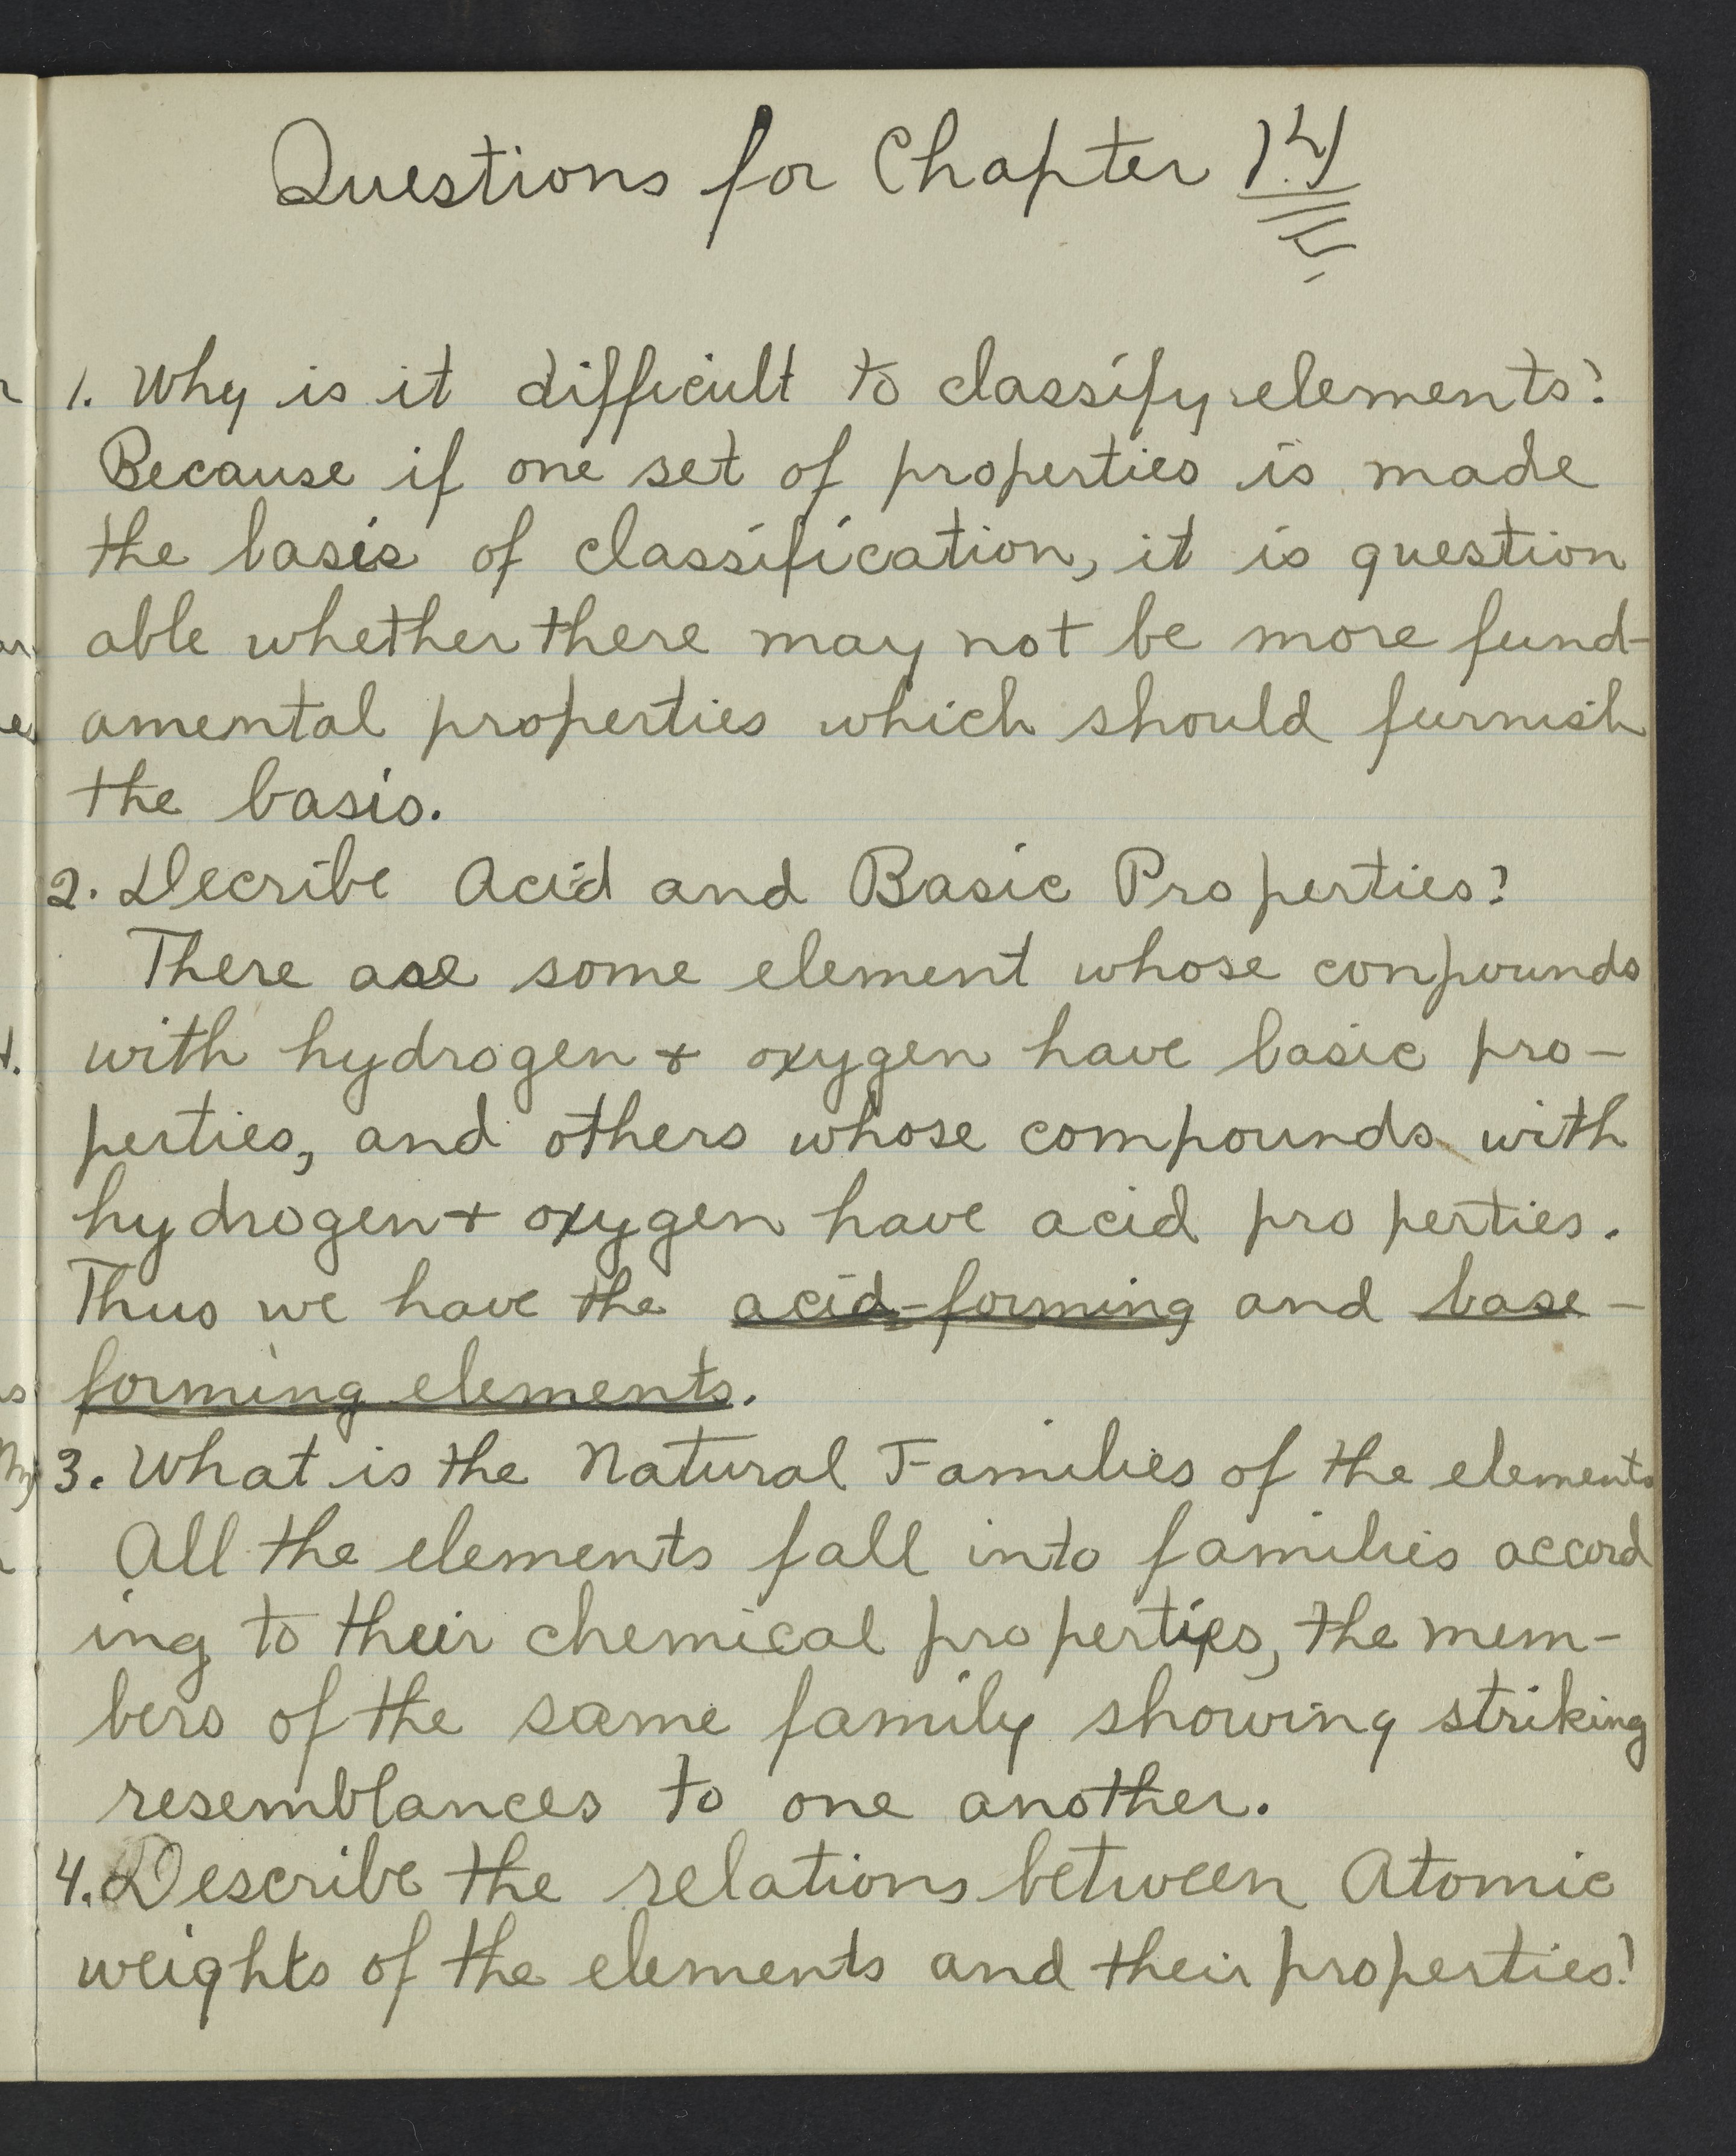 Questions for Chapter 14
1. Why is it difficult to classify elements?
Because if one set of properties is made
the basis of classification, it is question
able whether there may not be more fund-
amental properties which should furnish
the basis.
2. Decribe Acid and Basic Properties?
There are some element whose conpounds
with hydrogen & oxygen have basic pro-
perties, and others whose compounds with
hydrogen & oxygen have acid properties.
Thus we have the acid-forming and base-
forming elements.
3. What is the Natural Families of the elements
All the elements fall into families accord
ing to their chemical properties, the mem-
bers of the same family showing striking
resemblances to one another.
4. Describe the relations between Atomic
weights of the elements and their properties?